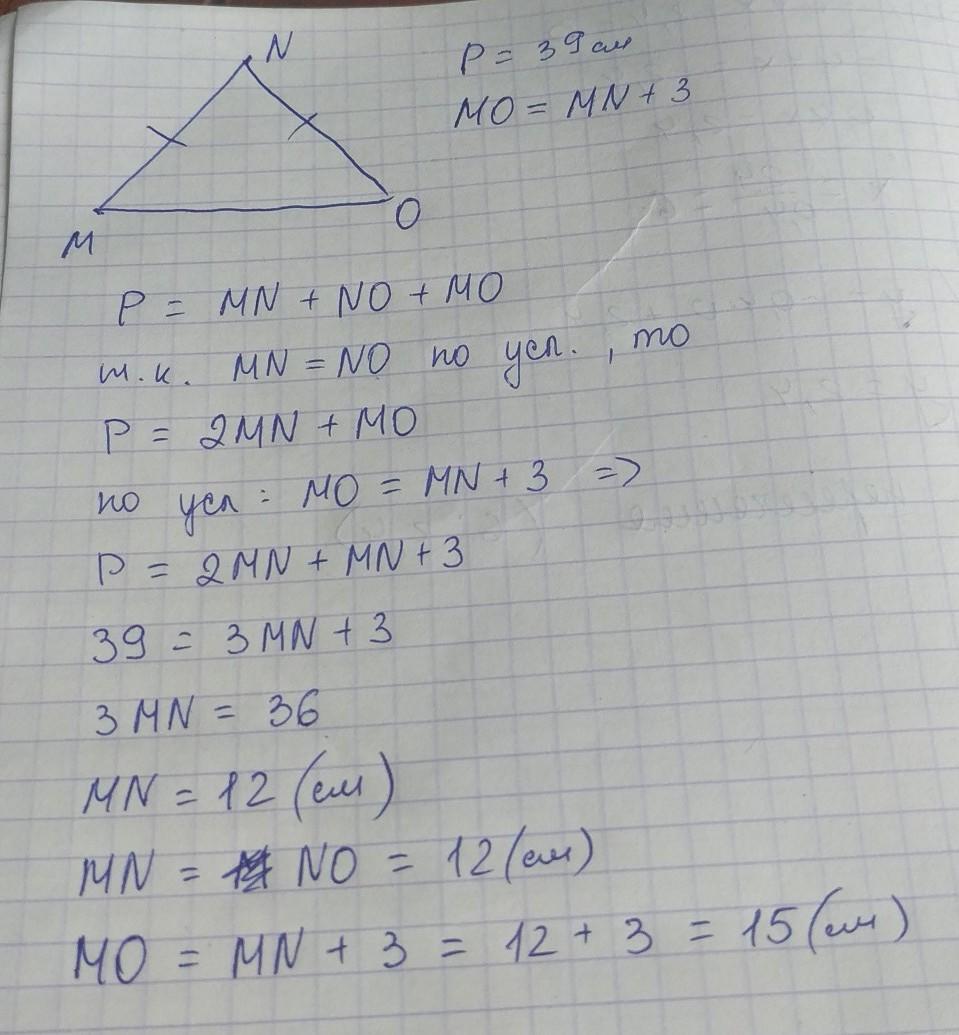 N
P = 39 см
MO = MN + 3
M
O
P = MN + NO + MO
т.к. MN = NO по усл. , то
P = 2MN + MO
по усл : MO = MN + 3 =>
P = 2MN + MN + 3
39 = 3MN + 3
3MN = 36
MN = 12 (см)
MN = NO = 12 (см)
MO = MN + 3 = 12 + 3 = 15 (см)